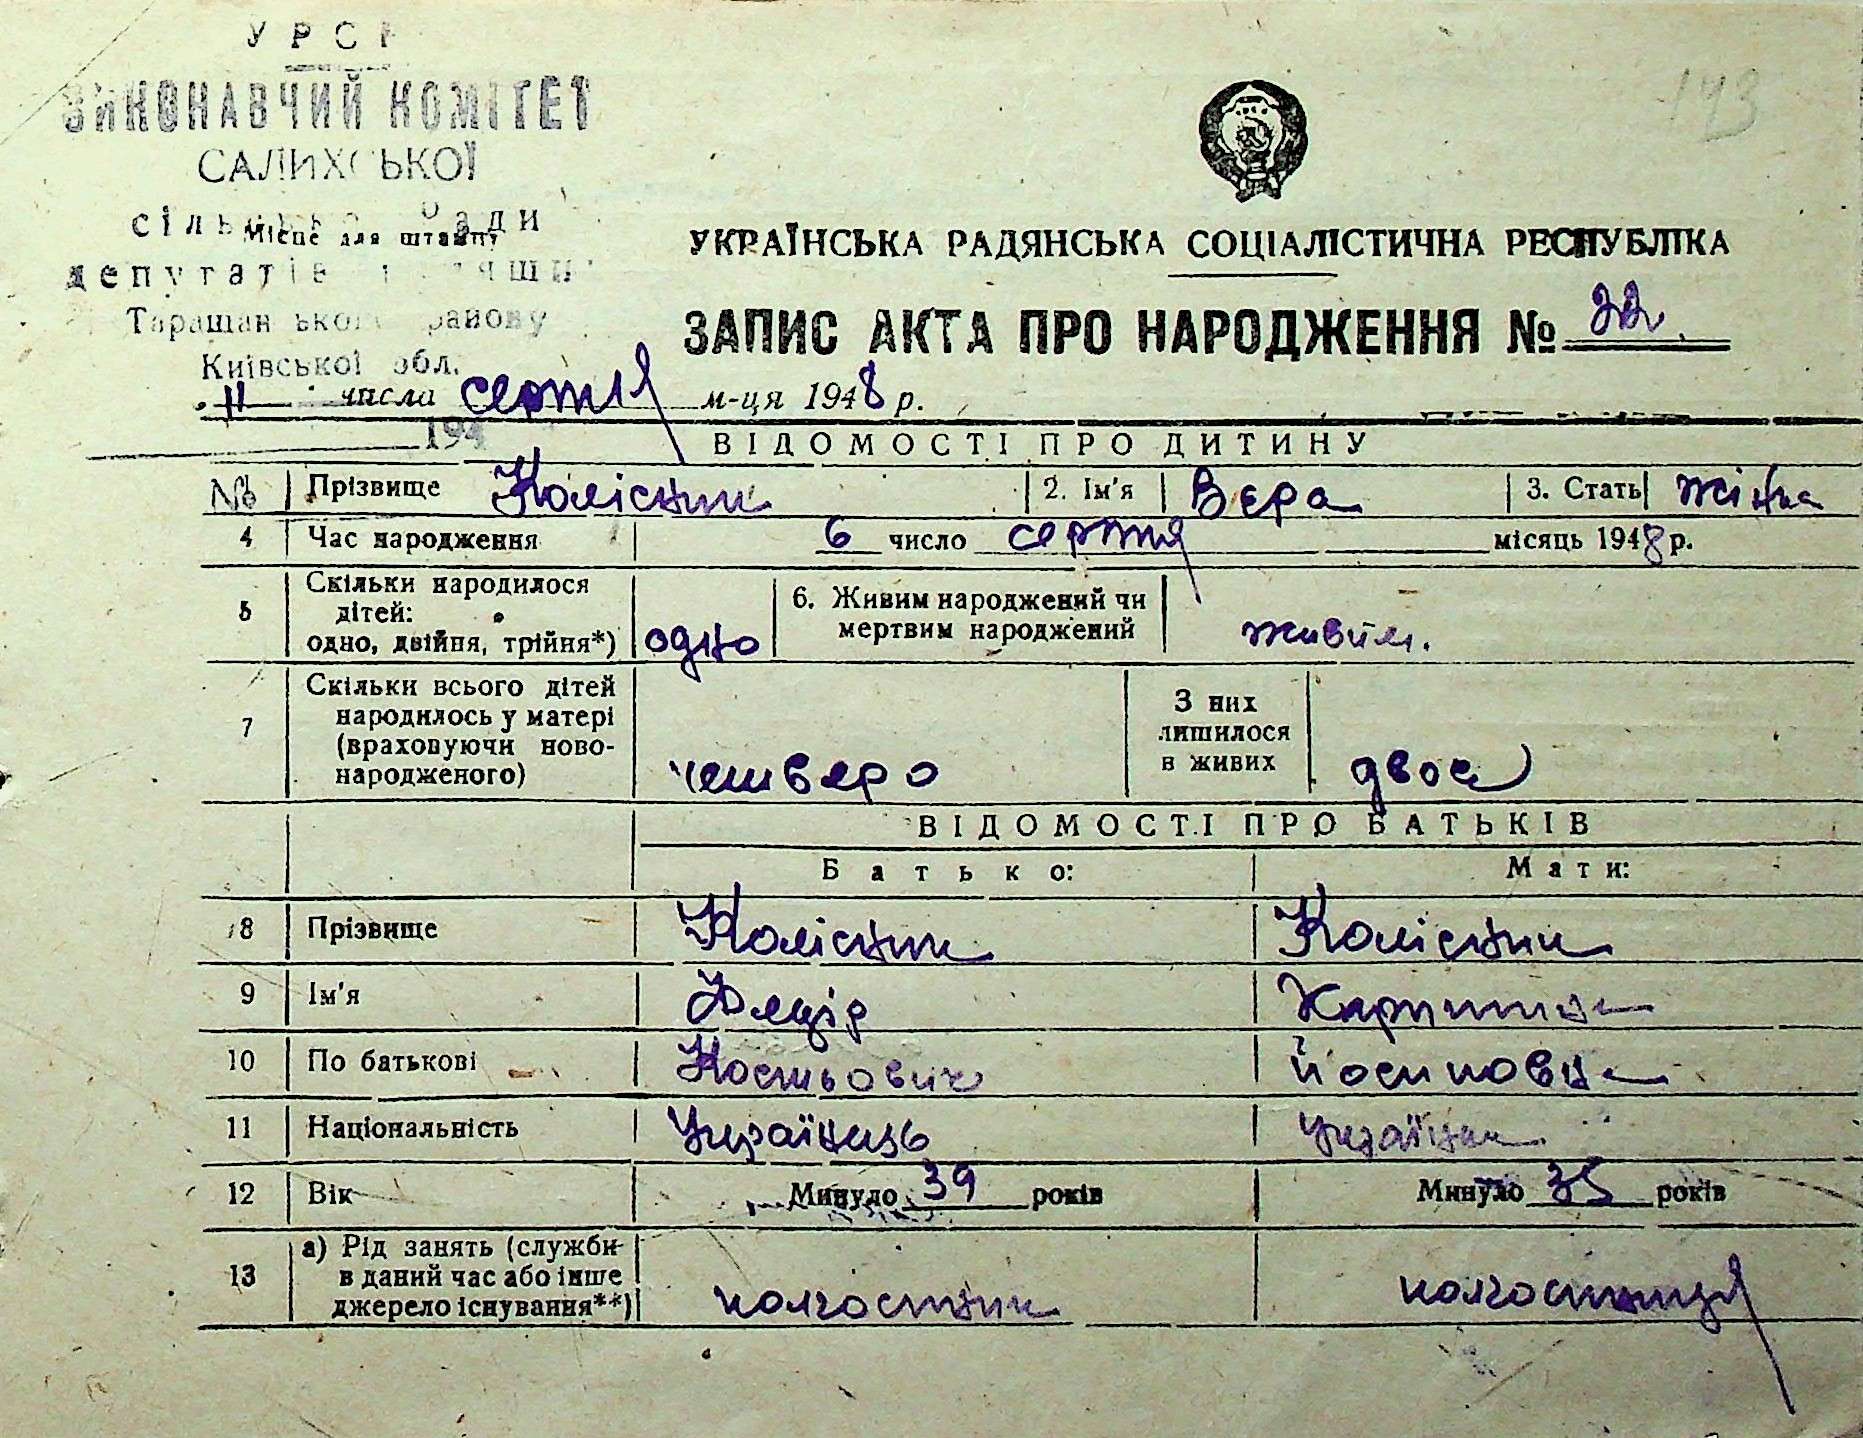 УРСР
ВИКОНАВЧИЙ КОМІТЕТ
САЛИХСЬКОЇ
сільської Ради
Місце для штампу
депутатів трудящих
Таращанського району
Київської обл.
173
УКРАЇНСЬКА РАДЯНСЬКА СОЦІАЛІСТИЧНА РЕСПУБЛІКА
ЗАПИС АКТА ПРО НАРОДЖЕННЯ № 22
11 числа серпня м-ця 1948 р.
194
ВІДОМОСТІ ПРО ДИТИНУ
№ Прізвище Колісник 2. Ім'я Вєра 3. Стать жінка
4 Час народження 6 число серпня місяць 1948 р.
5 Скільки народилося дітей: одно, двійня, трійня*) одно 6. Живим народжений чи мертвим народжений живим.
7 Скільки всього дітей народилось у матері (враховуючи новонародженого) четверо З них лишилося в живих двоє
ВІДОМОСТІ ПРО БАТЬКІВ
Батько: Мати:
8 Прізвище Колісник Колісник
9 Ім'я Федір Харитина
10 По батькові Костьович Йосиповна
11 Національність Українець Українка
12 Вік Минуло 39 років Минуло 35 років
13 а) Рід занять (служби в даний час або інше джерело існування**) колгоспник колгоспниця